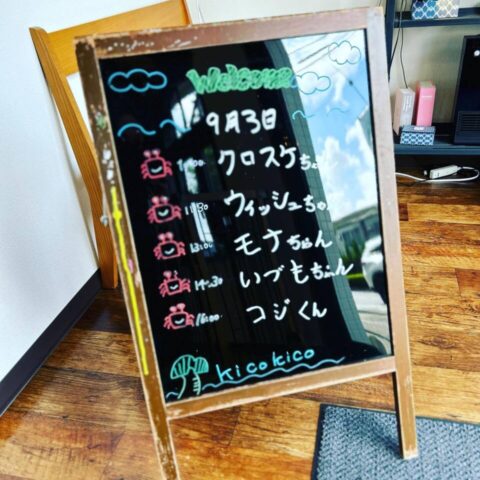 Welcome
9月3日
クロスケちゃん
11:30 ウィッシュちゃん
13:00 モナちゃん
14:30 いづもちゃん
16:00 コジくん
kicokico